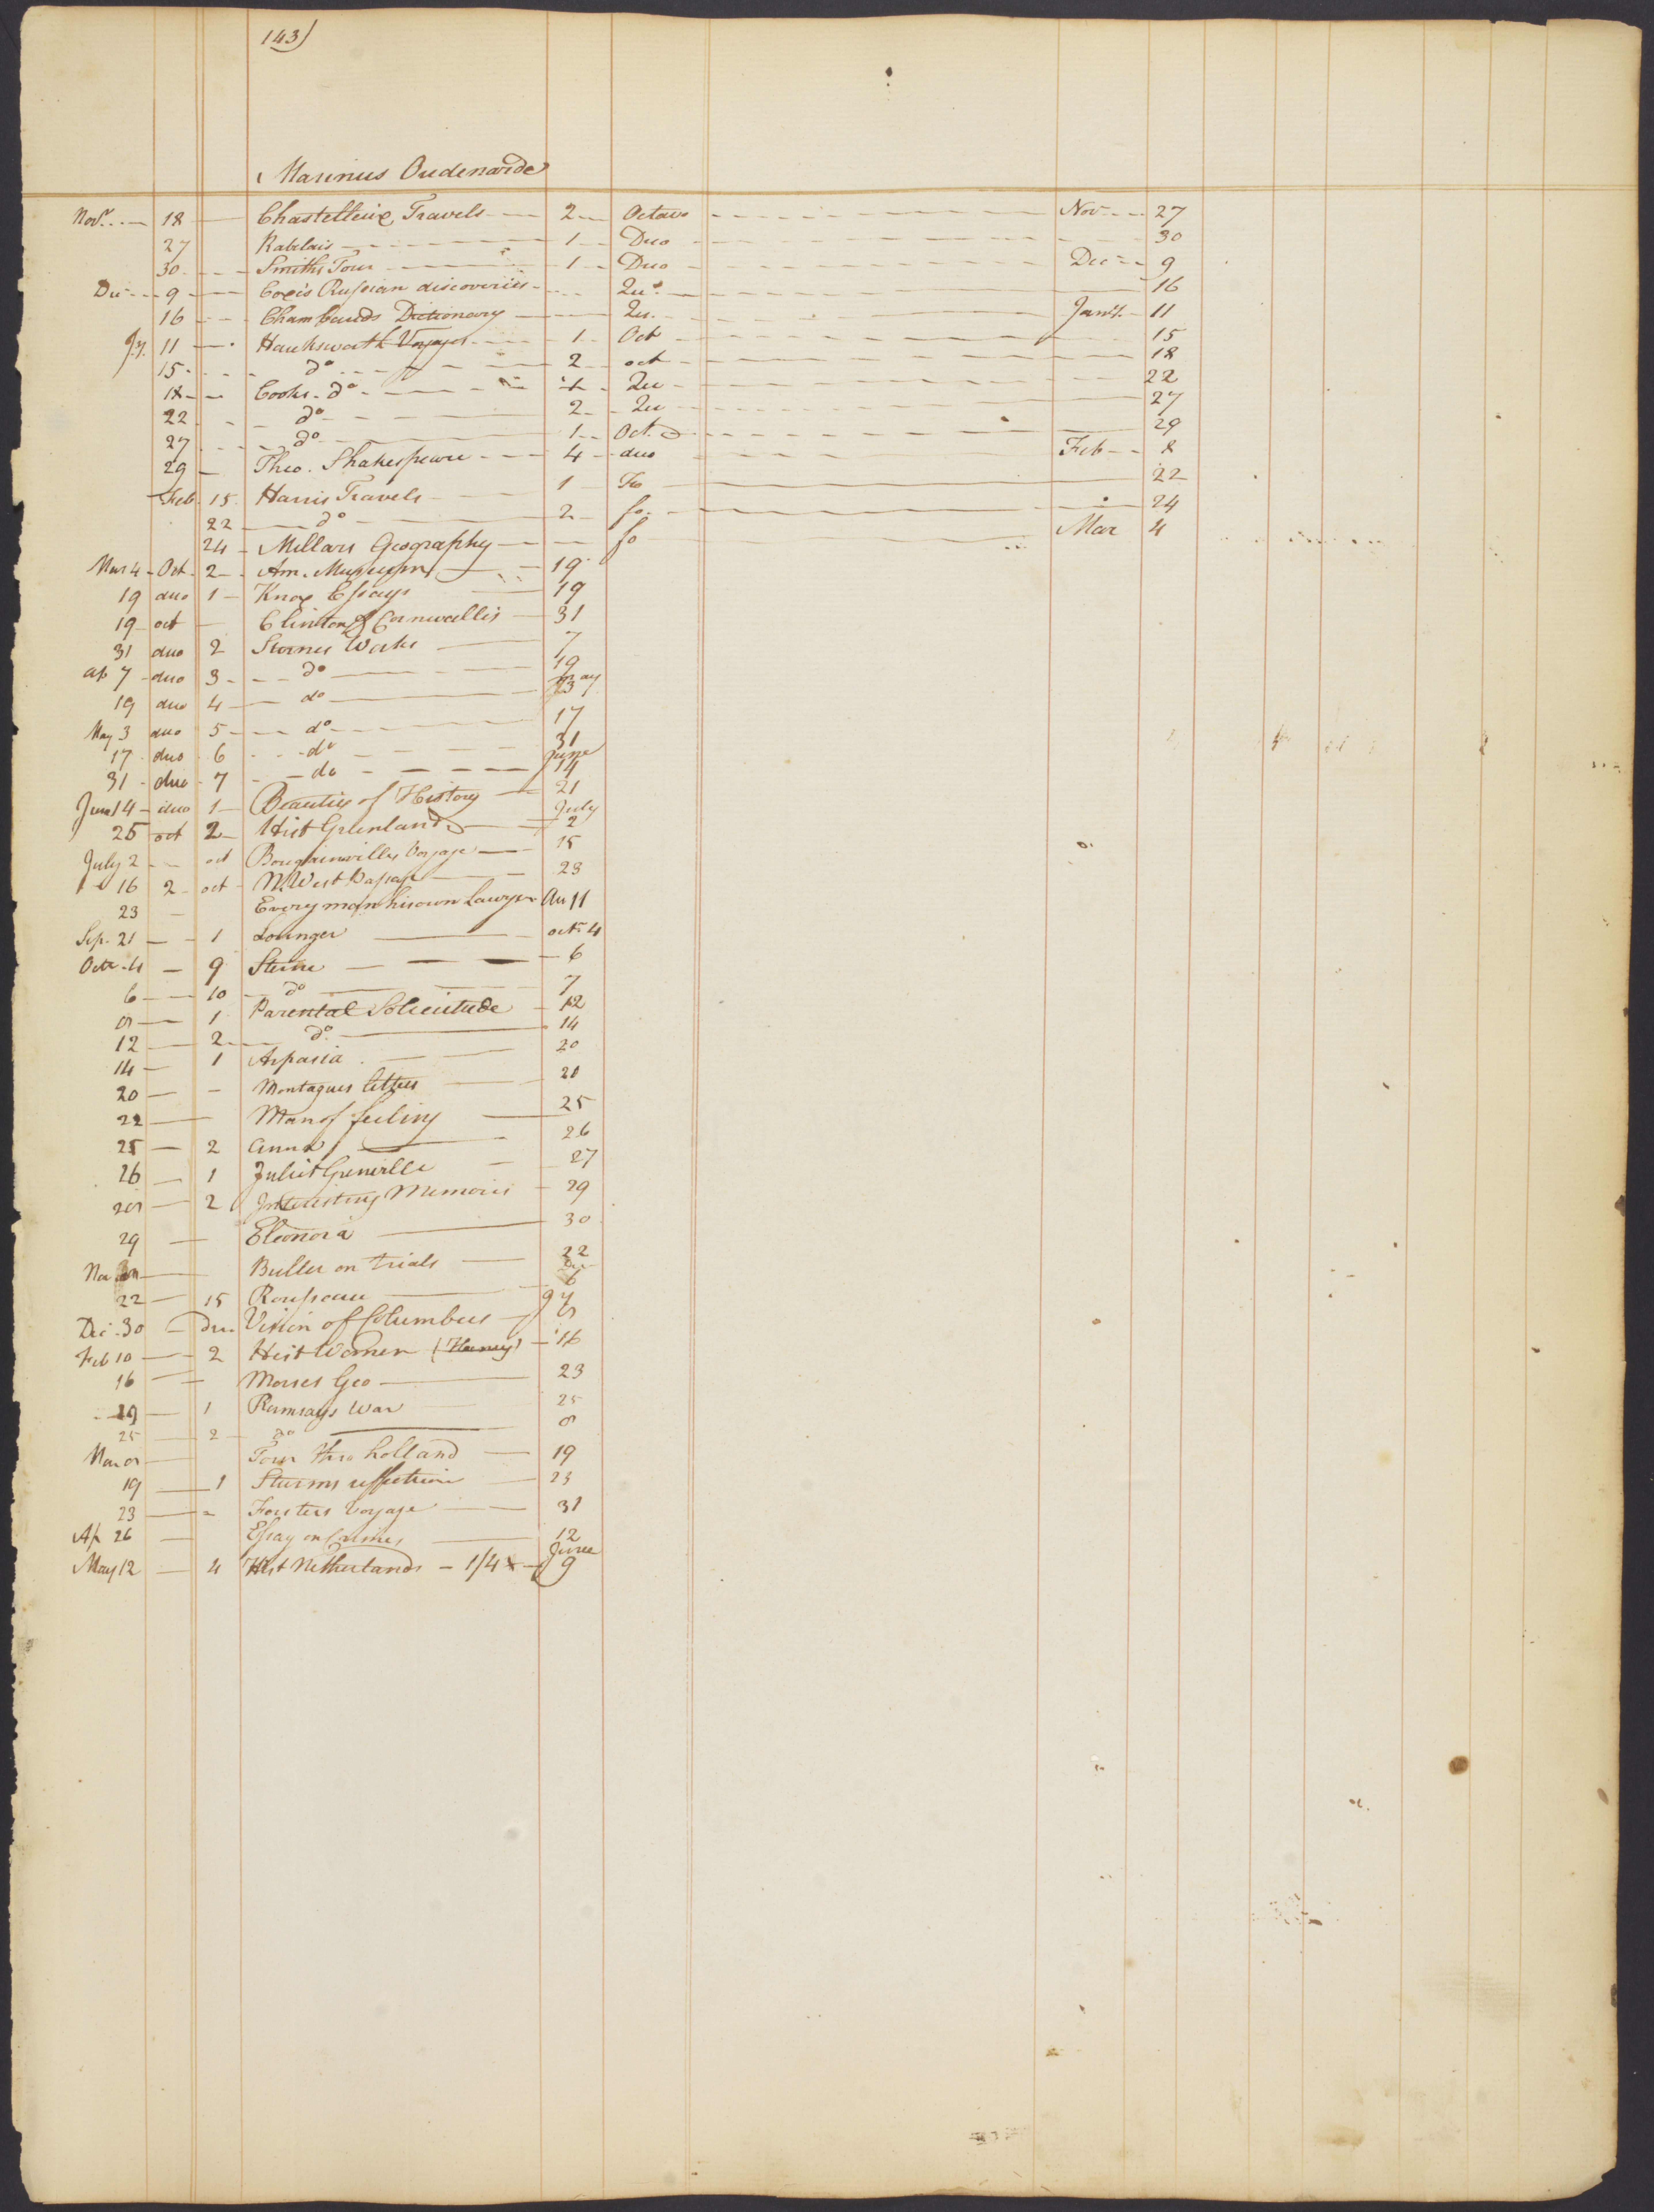 143)
Marinus Oudenarde
Novr. 18 Chastelleux Travels 2 Octavo Nov 27
27 Rablais 1 Duo 30
30 Smiths Tour 1 Duo Dec 9
Dec 9 Coxes Russian discoveries Qu. 16
16 Chambauds Dictionary Qu. Jany. 11
Jy. 11 Hawksworth Voyages 1 Oct 15
15 do 2 oct 18
18 Cooks do 1 Qu 22
22 do 2 Qu 27
27 do 1 Oct. 29
29 Theo. Shakespeare 4 duo Feb 8
Feb. 15 Harris Travels 1 Fo 22
22 do 2 fo. 24
24 Millars Geography fo Mar 4
Mar 4 Oct. 2 Am. Museum 19
19 duo 1 Knox Essays 19
19 oct Clinton & Cornwallis 31
31 duo 2 Sternes Works 7
ap 7 duo 3 do 19
19 duo 4 do May 3
May 3 duo 5 do 17
17 duo 6 do 31
31 duo 7 do June 14
June 14 duo 1 Beauties of History 21
25 oct 2 Hist Greenland July 2
July 2 oct Bougainvilles Voyage 15
16 2 oct N. West Passage 23
23 Every man his own Lawyer Au 11
Sep. 21 1 Lounger octr 4
Octr. 4 9 Sterne 6
6 10 do 7
8 1 Parental Solicitude 12
12 2 do. 14
14 1 Aspasia 20
20 Montagues letters 21
22 Man of feeling 25
25 2 Anna 26
26 1 Juliet Grenville 27
28 2 Interesting Memoirs 29
29 Eleonora 30
Nov Buller on trials 22
22 15 Rousseau Dec 6
Dec. 30 Du. Vision of Columbus
Feb 10 2 Hist Women 16
16 Morses Geo 23
19 1 Ramsays War 25
25 2 do 8
Mar 8 Tour thro holland 19
19 1 Sturms reflections 23
23 Forsters Voyage 31
Ap 26 Essay on Crimes 12
May 12 4 Hist Netherlands 1/4 June 9